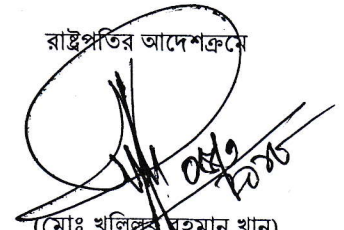 রাষ্ট্রপতির আদেশক্রমে
(মোঃ খলিলুর রহমান খান)